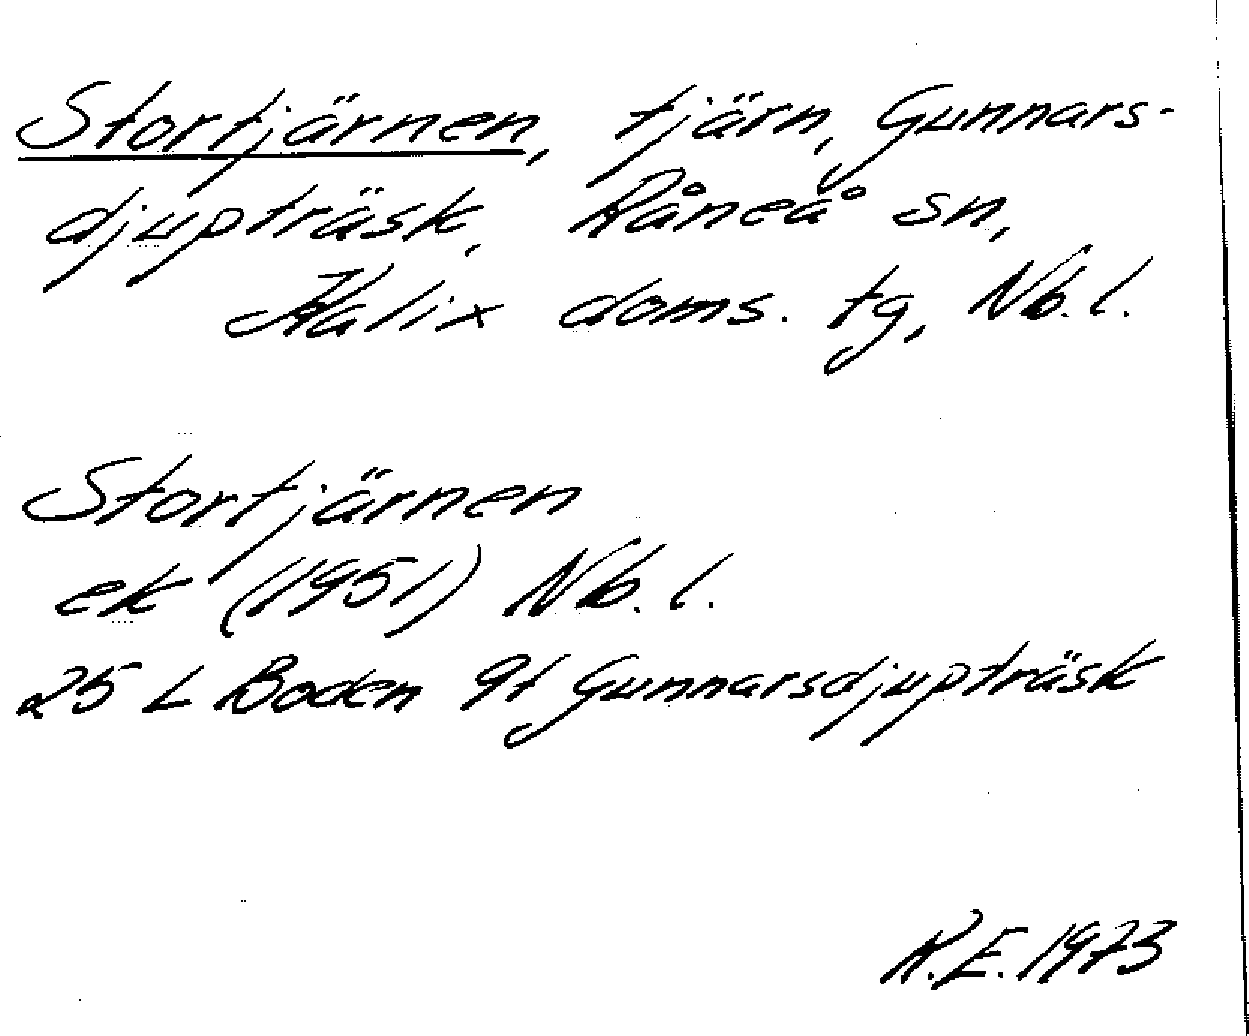 Stortjärnen, tjärn, Gunnars-
djupträsk, Råneå sn,
Kalix doms. tg, Nb.l.
Stortjärnen
ek (1951) Nb.l.
25 L Boden 9f Gunnarsdjupträsk
R.E. 1973